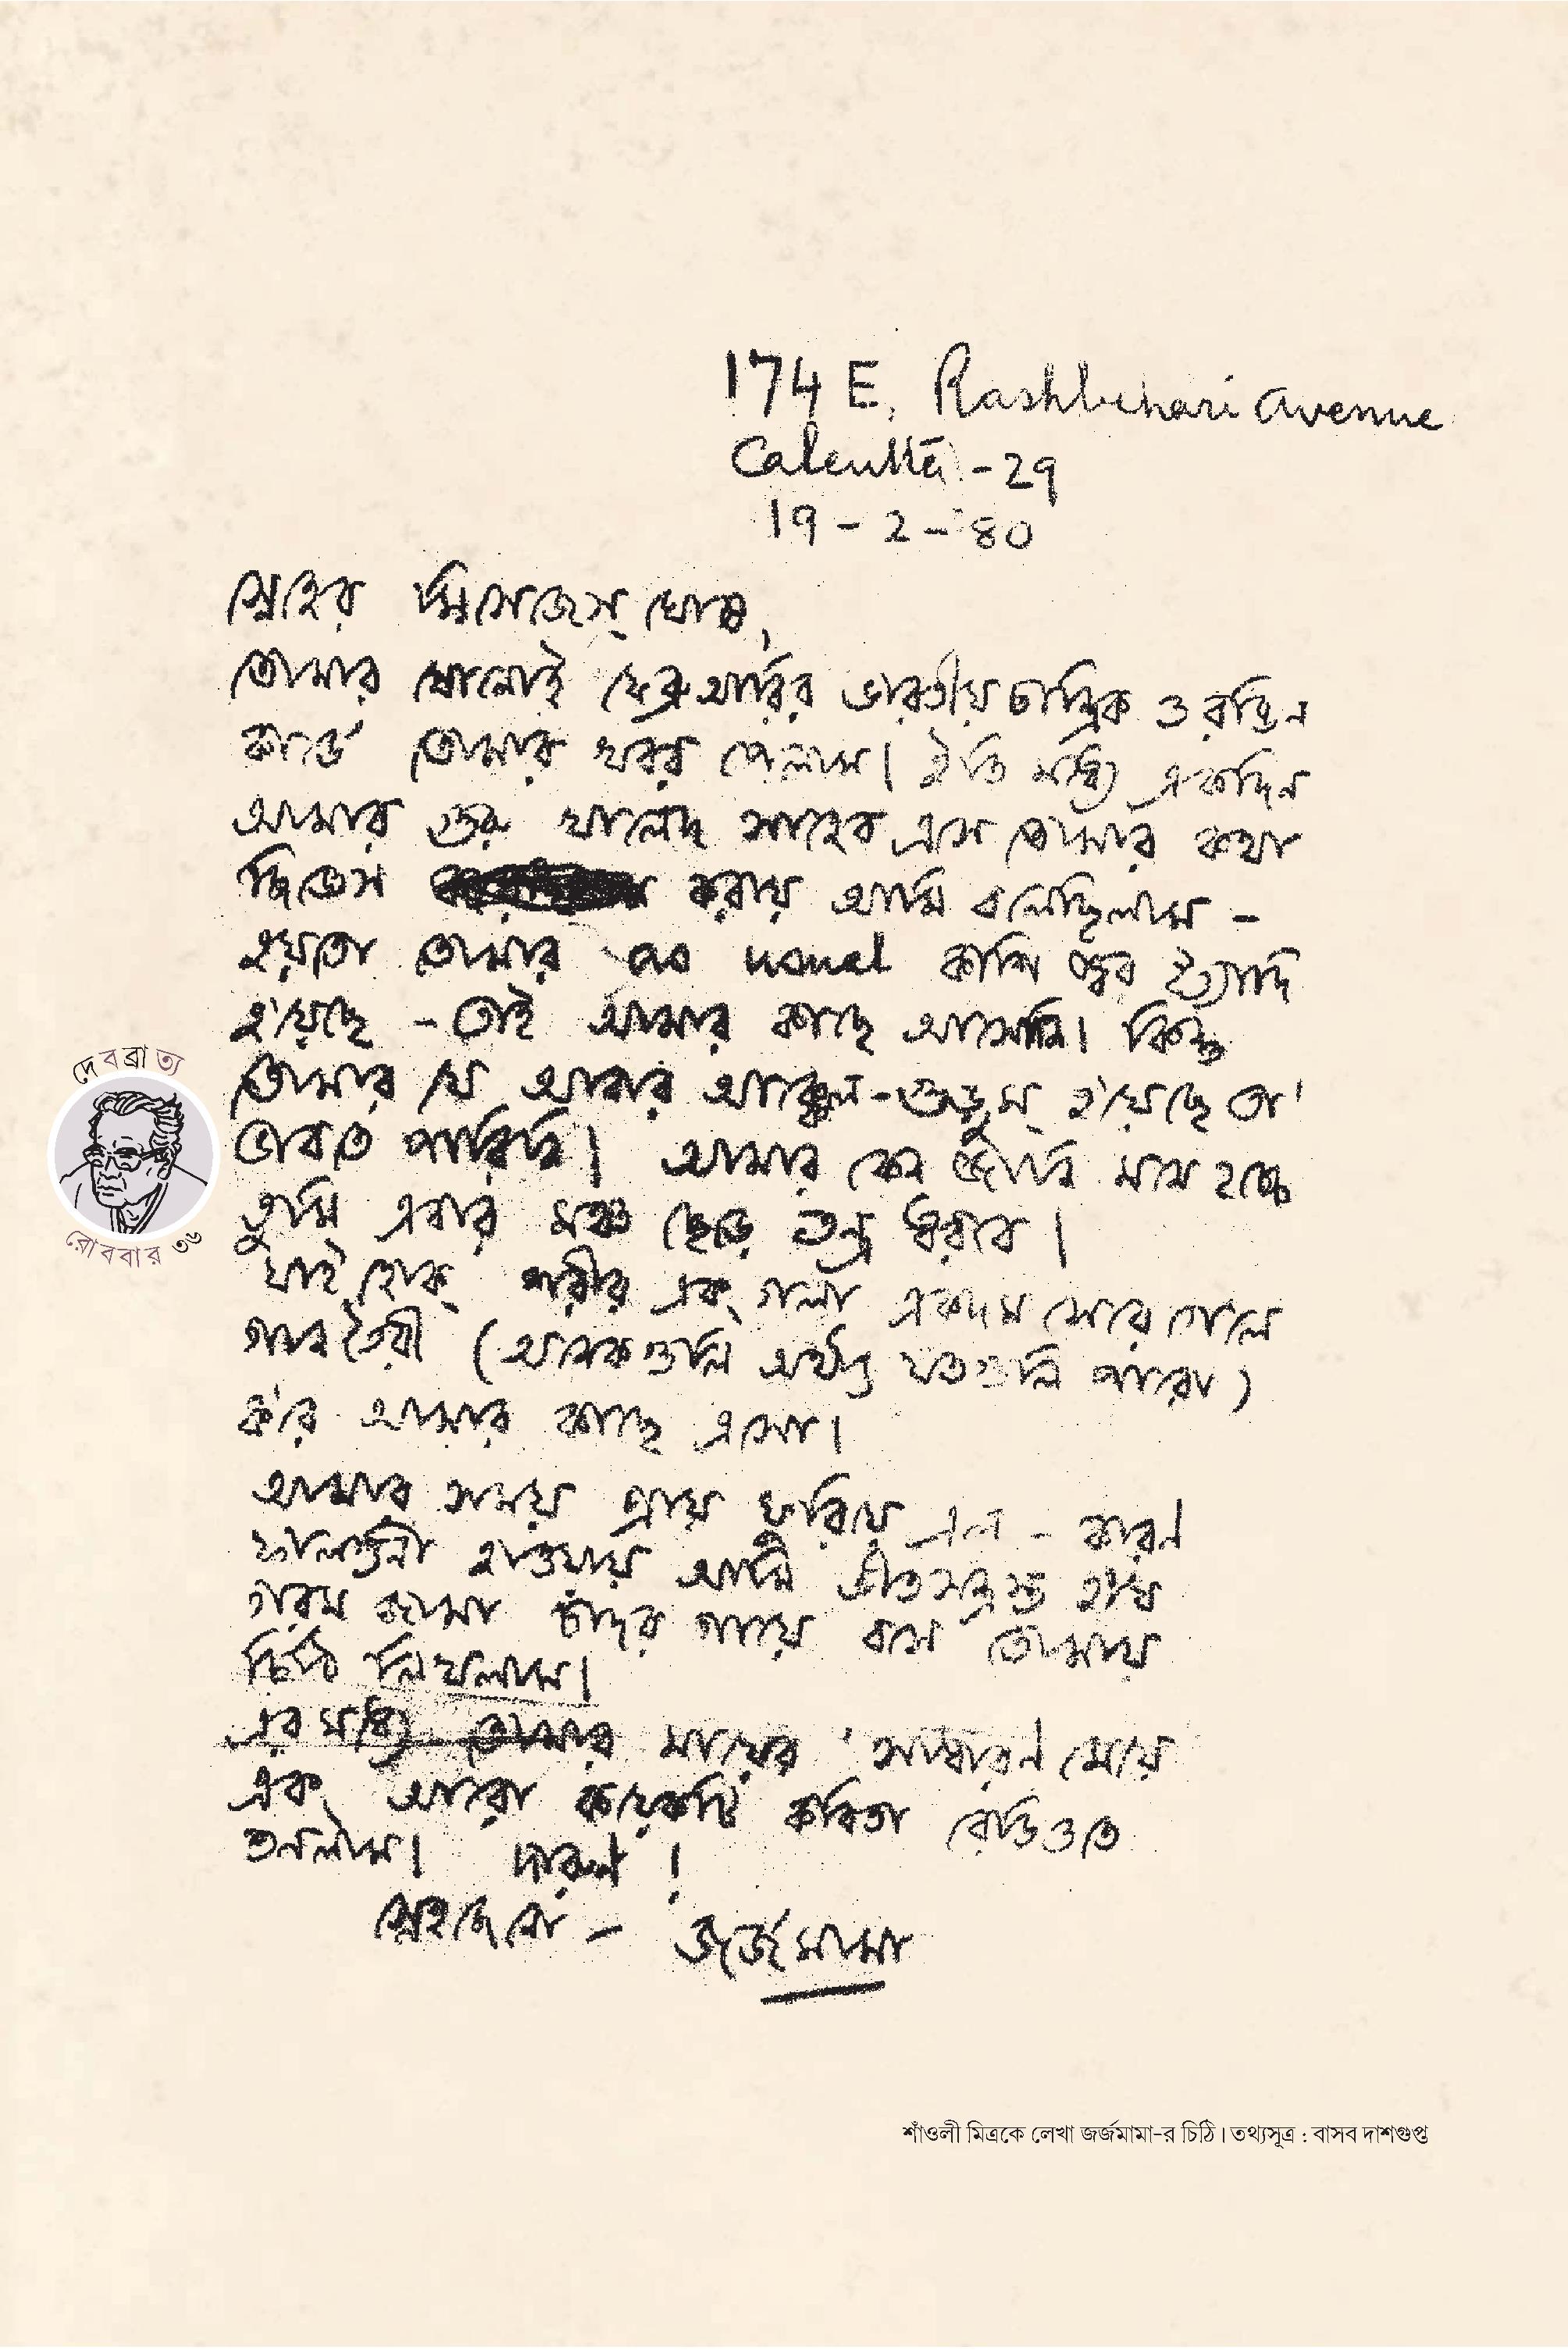 174 E, Rashbehari Avenue
Calcutta - 29
19 - 2 - '80
স্নেহের মিসেজস্ ঘোষ,
তোমার ষোলোই ফেব্রুআরির ভারতীয় চান্দ্রিক ও রঙিন
কার্ডে তোমার খবর পেলাম। ইতি মধ্যে একদিন
আমার গুরু খালেদ সাহেব এসে তোমার কথা
জিজ্ঞেস করায় আমি বলেছিলাম -
হয়তো তোমার as usual কাশি জ্বর ইত্যাদি
হ'য়েছে - তাই আমার কাছে আসোনি। কিন্তু
তোমার যে আবার আক্কেল-গুড়ুম্ হ'য়েছে তা'
ভাবতে পারিনি। আমার কেন জানি মনে হচ্ছে
তুমি এবার মঞ্চ ছেড়ে তন্ত্র ধরবে।
যাই হোক্ শরীর এবং গলা একদম সেরে গেলে
গান তৈরী (অনেকগুলি অর্থাৎ যতগুলি পারো)
ক'রে আমার কাছে এসো।
আমার সময় প্রায় ফুরিয়ে এল - কারণ
ফাল্গুনী হাওয়ায় আমি শীতসন্ত্রস্ত হ'য়ে
গরম জামা চাঁদর গায়ে বসে তোমায়
চিঠি লিখলাম।
এর মধ্যে তোমার মায়ের 'সাধারণ মেয়ে
এবং আরো কয়েকটি কবিতা রেডিওতে
শুনলাম। দারুণ !
স্নেহান্তে - জর্জমামা
দেবব্রাত্য
রোববার ৩৬
শাঁওলী মিত্রকে লেখা জর্জমামা-র চিঠি। তথ্যসূত্র : বাসব দাশগুপ্ত